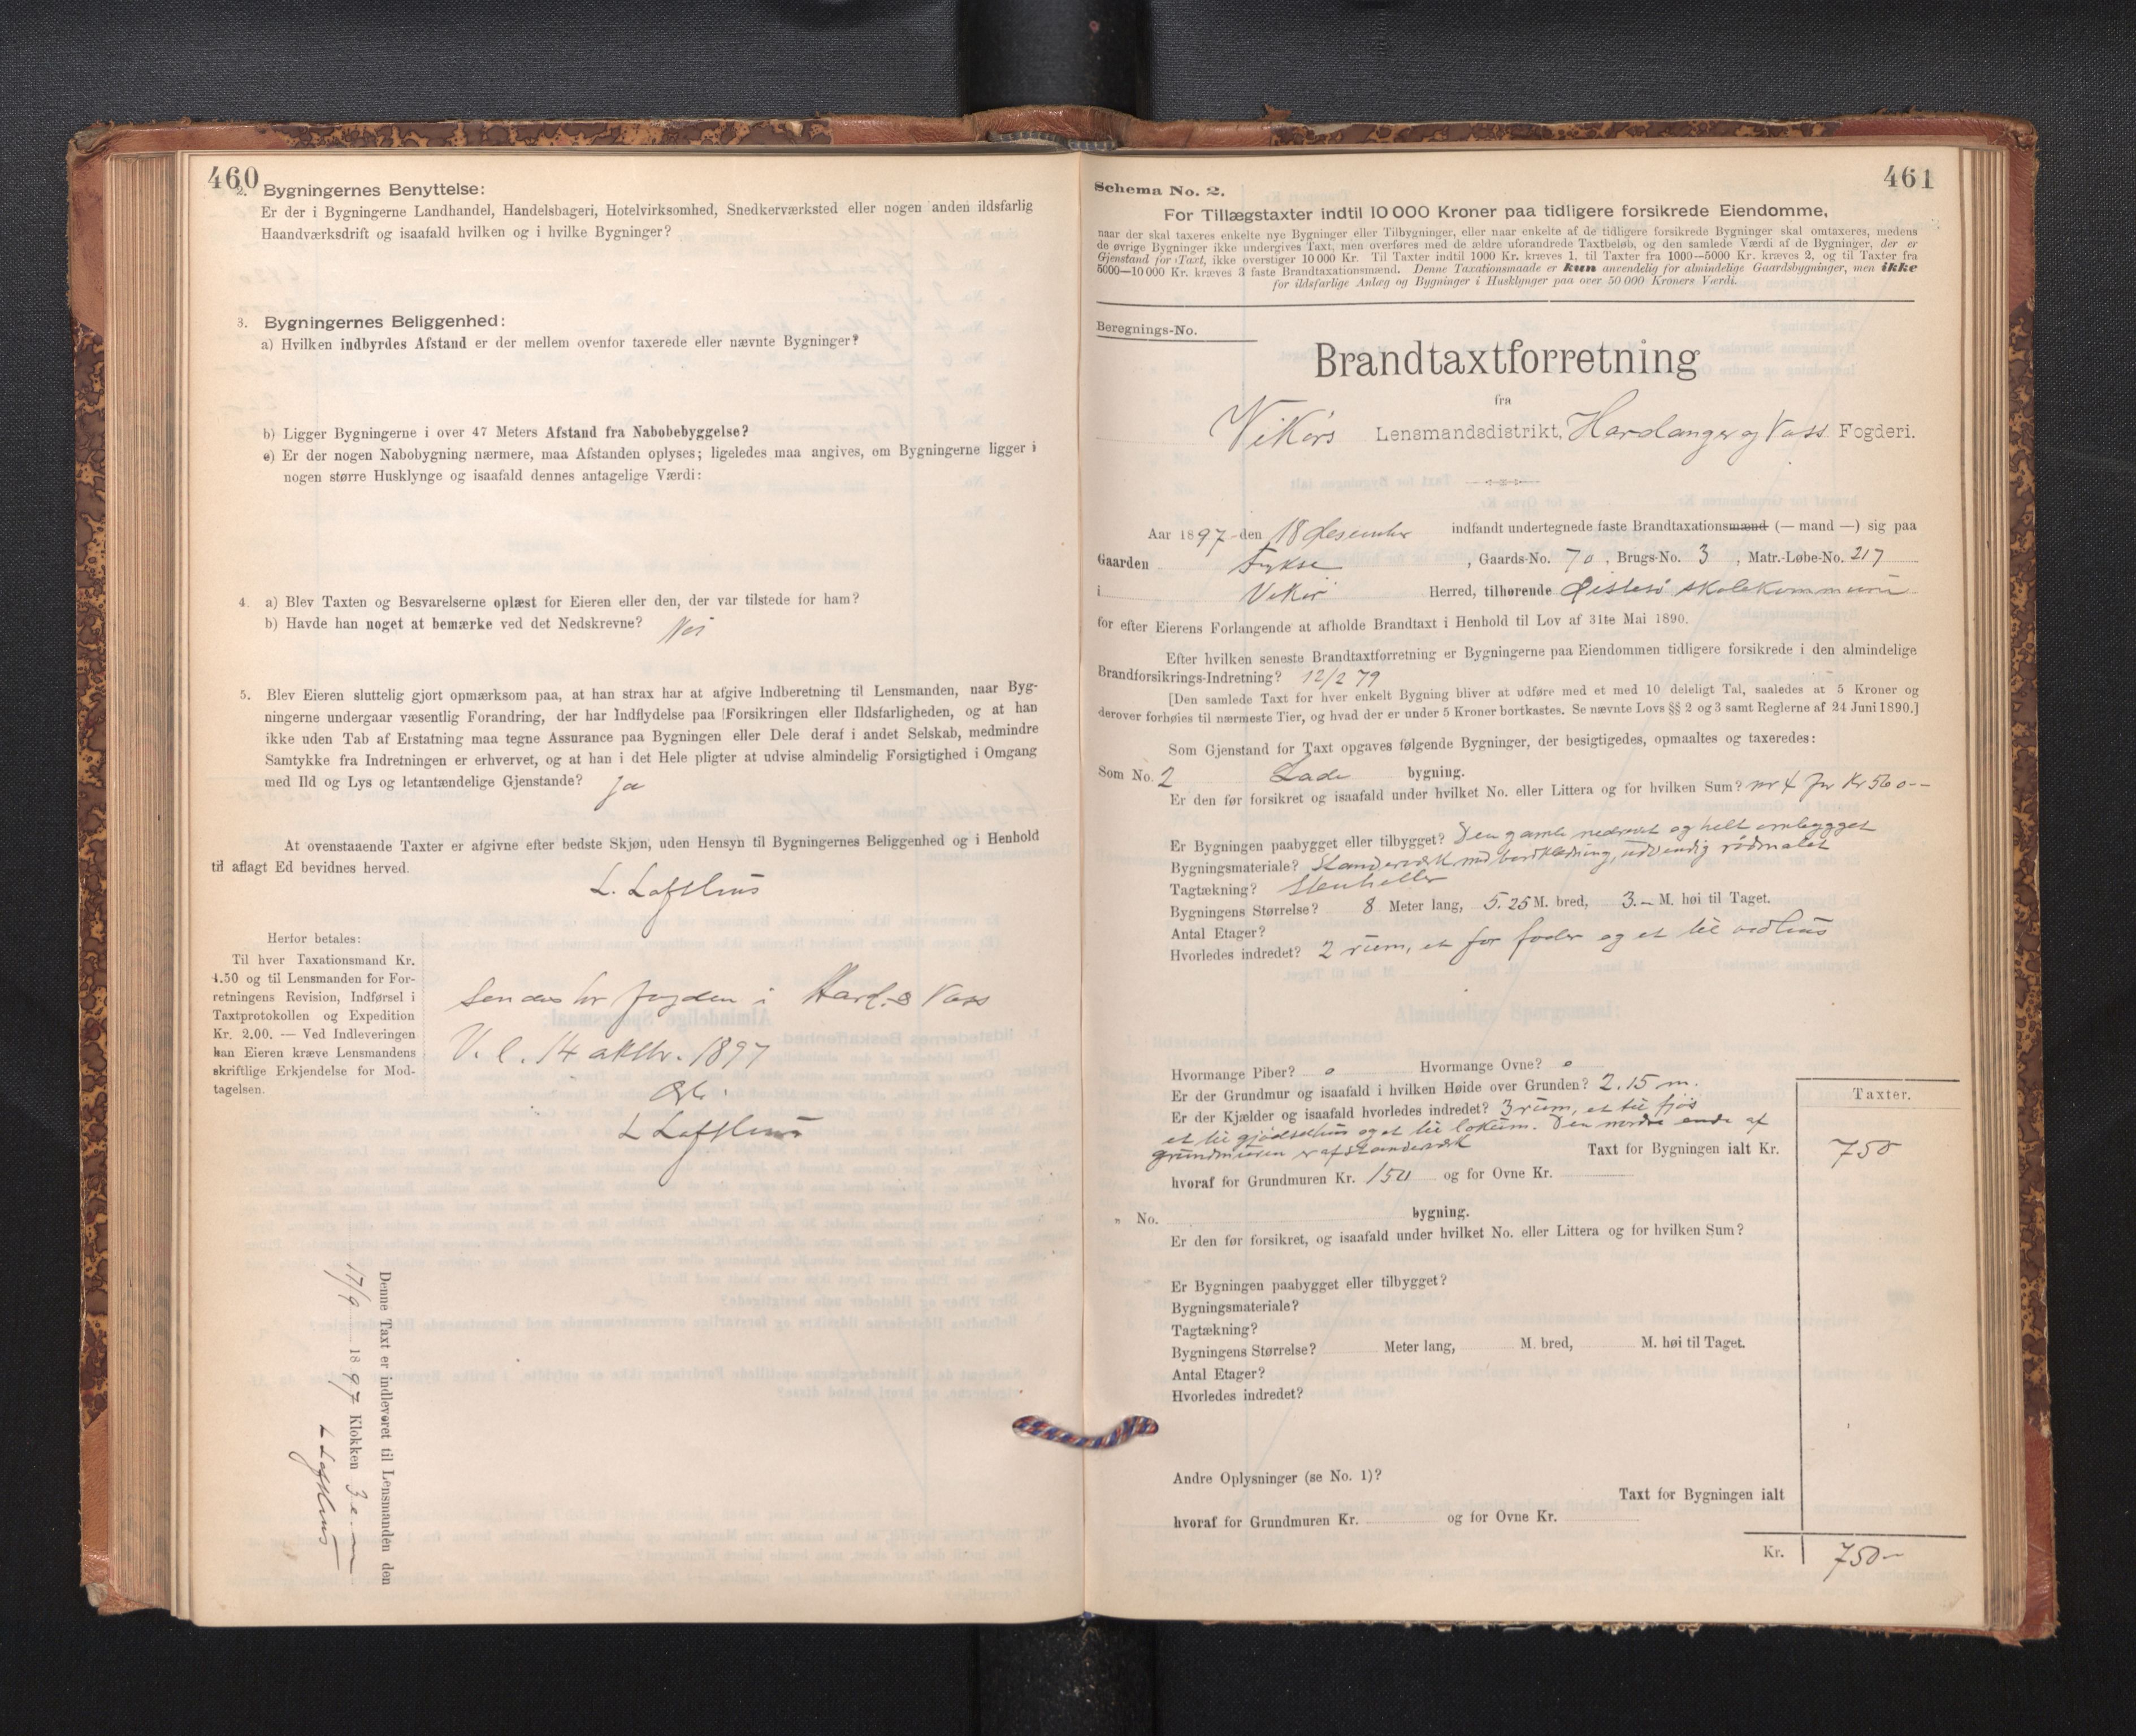 460
2. Bygningernes Benyttelse:
Er der i Bygningerne Landhandel, Handelsbageri, Hotelvirksomhed, Snedkerværksted eller nogen anden ildsfarlig
Haandværksdrift og isaafald hvilken og i hvilke Bygninger?
3. Bygningernes Beliggenhed:
a) Hvilken indbyrdes Afstand er der mellem ovenfor taxerede eller nævnte Bygninger?
b) Ligger Bygningerne i over 47 Meters Afstand fra Nabobebyggelse?
c) Er der nogen Nabobygning nærmere, maa Afstanden oplyses; ligeledes maa angives, om Bygningerne ligger i
nogen større Husklynge og isaafald dennes antagelige Værdi:
4. a) Blev Taxten og Besvarelserne oplæst for Eieren eller den, der var tilstede for ham?
b) Havde han noget at bemærke ved det Nedskrevne? Nei
5. Blev Eieren sluttelig gjort opmærksom paa, at han strax har at afgive Indberetning til Lensmanden, naar Byg-
ningerne undergaar væsentlig Forandring, der har Indflydelse paa Forsikringen eller Ildsfarligheden, og at han
ikke uden Tab af Erstatning maa tegne Assurance paa Bygningen eller Dele deraf i andet Selskab, medmindre
Samtykke fra Indretningen er erhvervet, og at han i det Hele pligter at udvise almindelig Forsigtighed i Omgang
med Ild og Lys og letantændelige Gjenstande? Ja
At ovenstaaende Taxter er afgivne efter bedste Skjøn, uden Hensyn til Bygningernes Beliggenhed og i Henhold
til aflagt Ed bevidnes herved.
L. Lofthus
Herfor betales:
Til hver Taxationsmand Kr.
4.50 og til Lensmanden for For-
retningens Revision, Indførsel i
Taxtprotokollen og Expedition
Kr. 2.00. — Ved Indleveringen
kan Eieren kræve Lensmandens
skriftlige Erkjendelse for Mod-
tagelsen.
Sendes hr fogden i Hard. & Voss
V. l. 14 oktbr. 1897
L Lofthus
Denne Taxt er indleveret til Lensmanden den
17/9 1897 Klokken 3 e. m
L Lofthus
461
Schema No. 2.
For Tillægstaxter indtil 10 000 Kroner paa tidligere forsikrede Eiendomme,
naar der skal taxeres enkelte nye Bygninger eller Tilbygninger, eller naar enkelte af de tidligere forsikrede Bygninger skal omtaxeres, medens
de øvrige Bygninger ikke undergives Taxt, men overføres med de ældre uforandrede Taxtbeløb, og den samlede Værdi af de Bygninger, der er
Gjenstand for Taxt, ikke overstiger 10 000 Kr. Til Taxter indtil 1000 Kr. kræves 1, til Taxter fra 1000—5000 Kr. kræves 2, og til Taxter fra
5000—10 000 Kr. kræves 3 faste Brandtaxationsmænd. Denne Taxationsmaade er kun anvendelig for almindelige Gaardsbygninger, men ikke
for ildsfarlige Anlæg og Bygninger i Husklynger paa over 50 000 Kroners Værdi.
Beregnings-No.
Brandtaxtforretning
fra
Vikörs Lensmandsdistrikt, Hardanger og Voss Fogderi.
Aar 1897 den 18 desember indfandt undertegnede faste Brandtaxationsmænd (— mand —) sig paa
Gaarden Fykse, Gaards-No. 70, Brugs-No. 3, Matr.-Løbe-No. 217
i Vikör Herred, tilhørende Östesö skolekommune
for efter Eierens Forlangende at afholde Brandtaxt i Henhold til Lov af 31te Mai 1890.
Efter hvilken seneste Brandtaxtforretning er Bygningerne paa Eiendommen tidligere forsikrede i den almindelige
Brandforsikrings-Indretning? 12/2 79
[Den samlede Taxt for hver enkelt Bygning bliver at udføre med et med 10 deleligt Tal, saaledes at 5 Kroner og
derover forhøies til nærmeste Tier, og hvad der er under 5 Kroner bortkastes. Se nævnte Lovs §§ 2 og 3 samt Reglerne af 24 Juni 1890.]
Som Gjenstand for Taxt opgaves følgende Bygninger, der besigtigedes, opmaaltes og taxeredes:
Som No. 2 Lade bygning.
Er den før forsikret og isaafald under hvilket No. eller Littera og for hvilken Sum? nr 4 for Kr 560--
Er Bygningen paabygget eller tilbygget? Den gamle nedrevet og helt ombygget
Bygningsmateriale? Standerværk med bordklædning, udvendig rödmalet
Tagtækning? Stenheller
Bygningens Størrelse? 8 Meter lang, 5.25 M. bred, 3.- M. høi til Taget.
Antal Etager?
Hvorledes indredet? 2 rum, et for foder og et til vedhus
Hvormange Piber? 0 Hvormange Ovne? 0
Er der Grundmur og isaafald i hvilken Høide over Grunden? 2.15 m.
Er der Kjælder og isaafald hvorledes indredet? 3 rum, et til fjös
et til gjödselhus og et til lokum. Den nordre ende af
grundmuren er af standerværk Taxt for Bygningen ialt Kr.
Taxter.
750
hvoraf for Grundmuren Kr. 150 og for Ovne Kr.
" No. bygning.
Er den før forsikret, og isaafald under hvilket No. eller Littera og for hvilken Sum?
Er Bygningen paabygget eller tilbygget?
Bygningsmateriale?
Tagtækning?
Bygningens Størrelse? Meter lang, M. bred, M. høi til Taget.
Antal Etager?
Hvorledes indredet?
Andre Oplysninger (se No. 1)?
Taxt for Bygningen ialt
hvoraf for Grundmuren Kr. og for Ovne Kr.
Kr. 750-